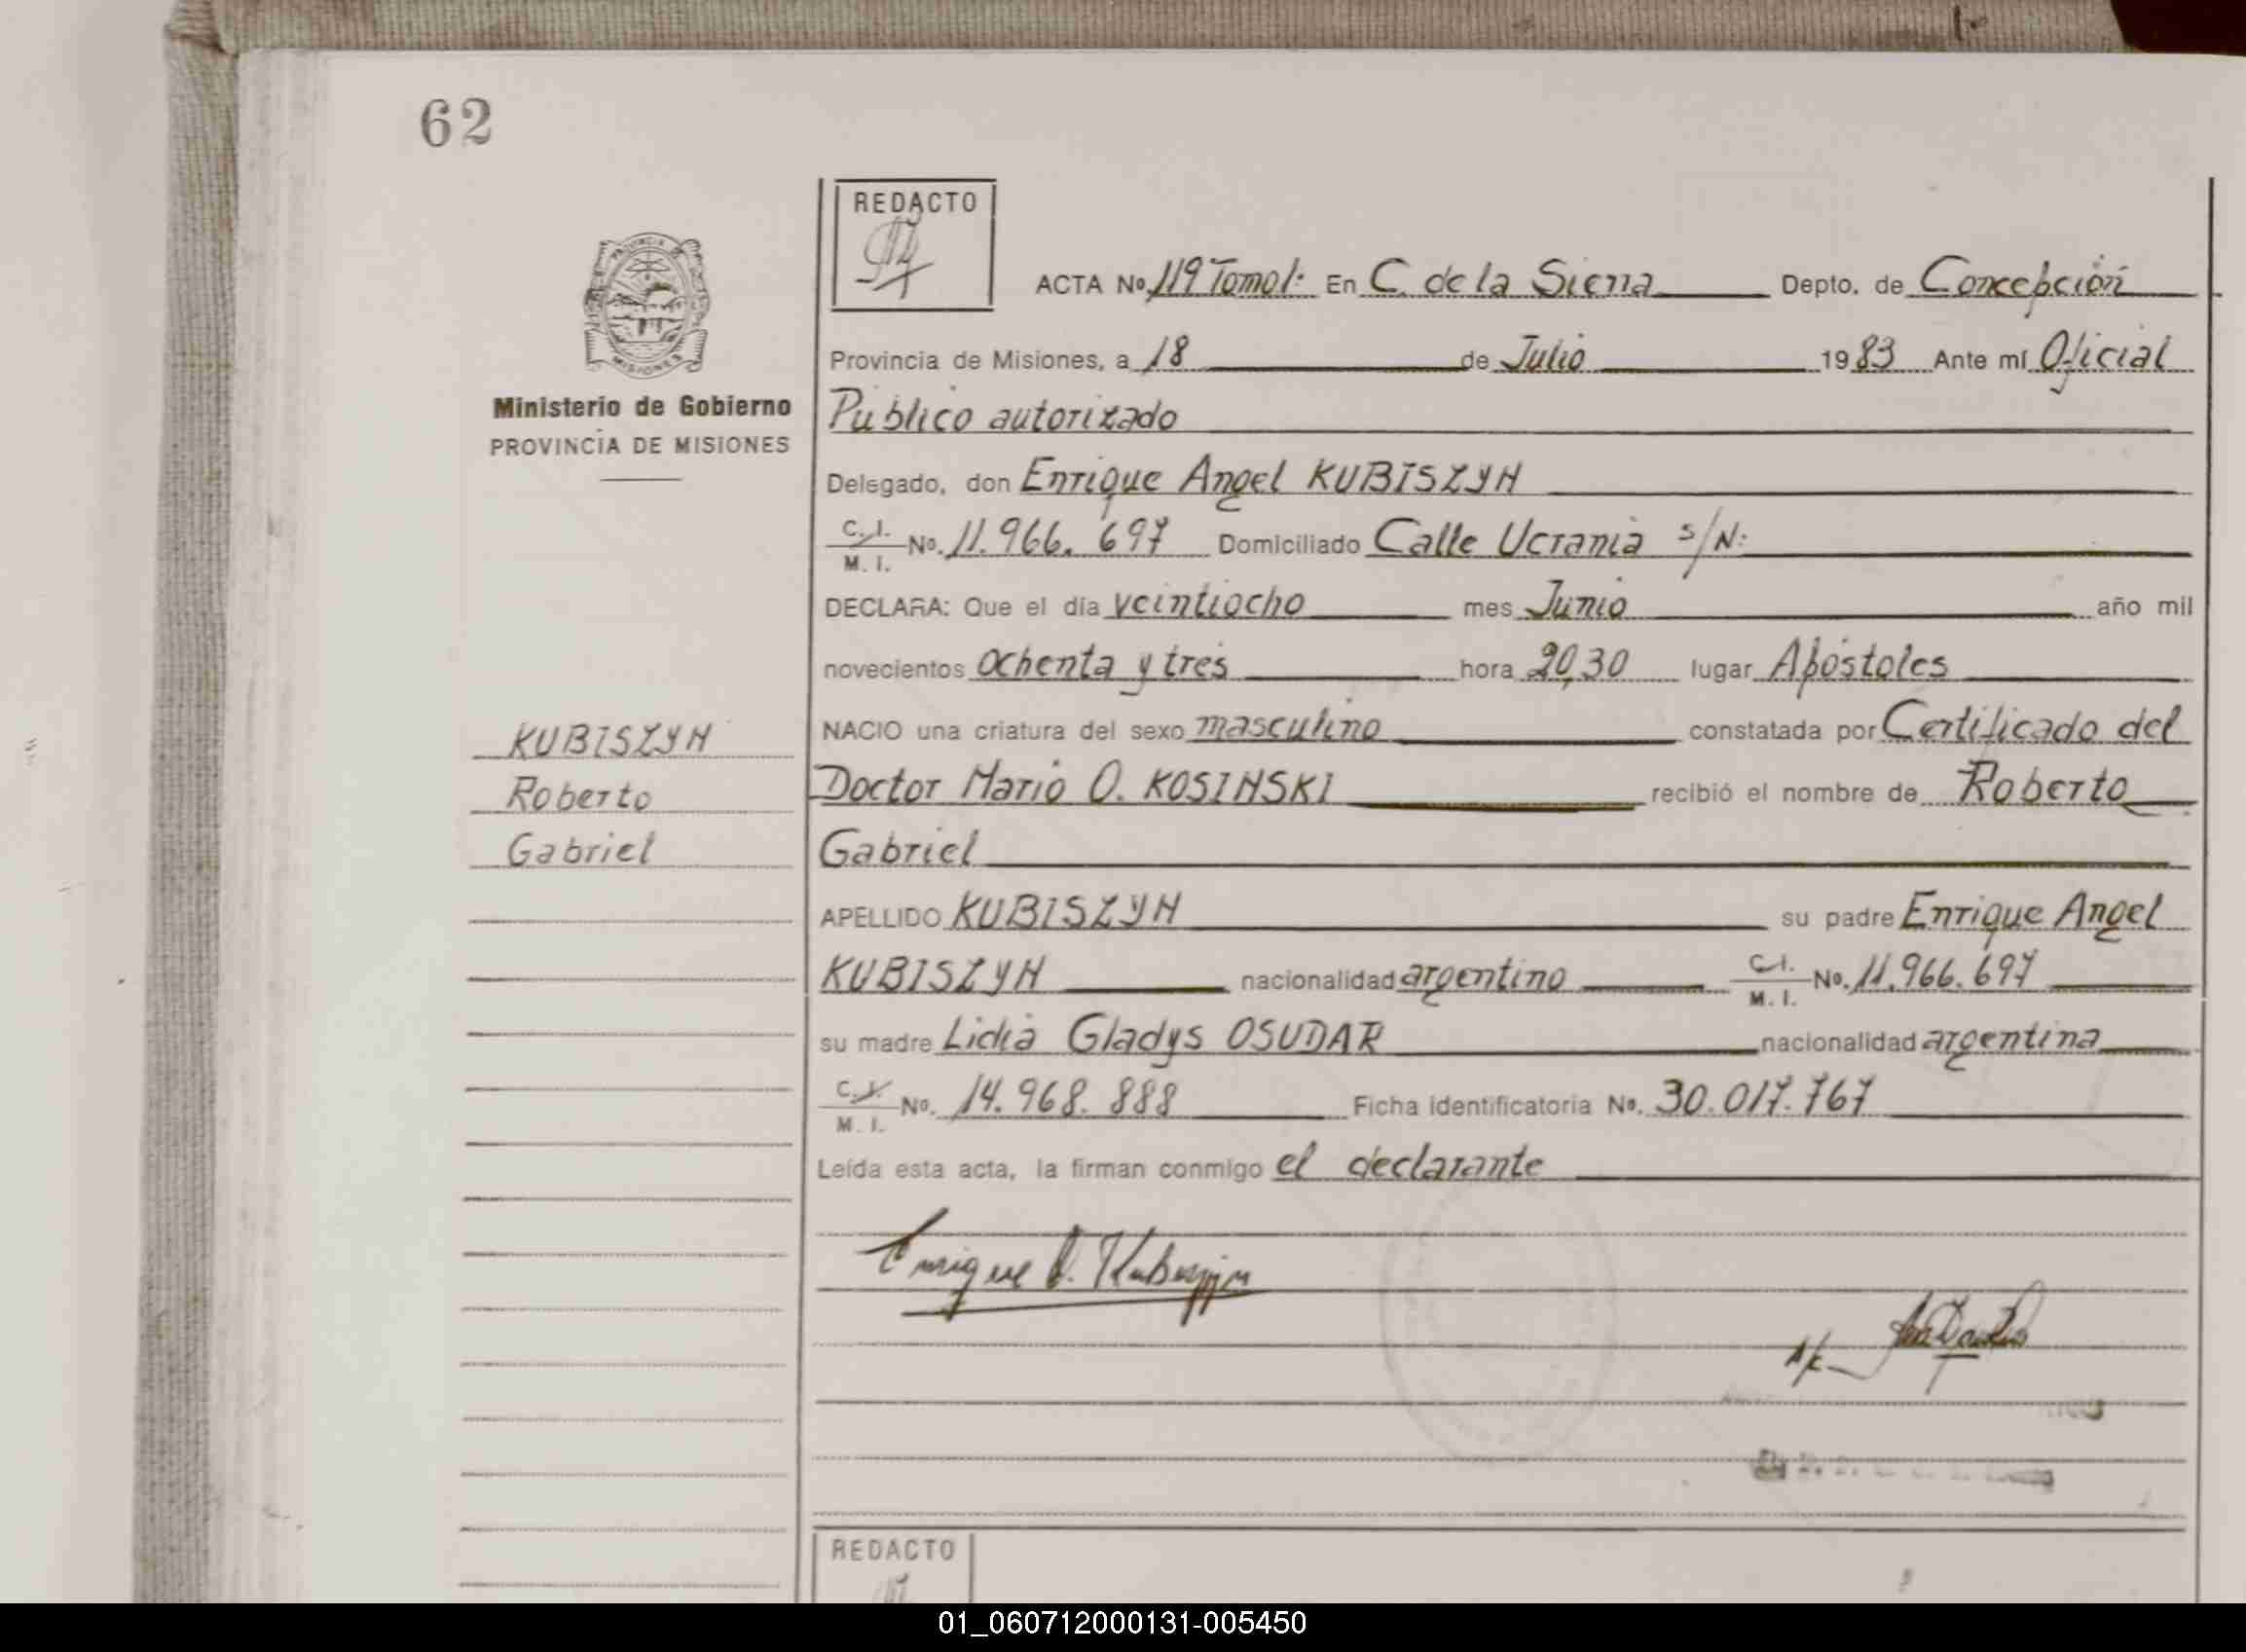 62
REDACTO
ACTA No. 119 Tomo I: En C. de la Sierra Depto. de Concepción
Provincia de Misiones, a 18 de Julio 1983 Ante mí Oficial
Ministerio de Gobierno
PROVINCIA DE MISIONES
Público autorizado
Delegado, don Enrique Angel KUBISZYN
C. I. No. 11.966.697 Domiciliado Calle Ucrania s/N:
M. I.
DECLARA: Que el día veintiocho mes Junio año mil
novecientos ochenta y tres hora 20,30 lugar Apóstoles
KUBISZYN
Roberto
Gabriel
NACIO una criatura del sexo masculino constatada por Certificado del
Doctor Mario O. KOSINSKI recibió el nombre de Roberto
Gabriel
APELLIDO KUBISZYN su padre Enrique Angel
KUBISZYN nacionalidad argentino C.I. No. 11.966.697
M. I.
su madre Lidia Gladys OSUDAR nacionalidad argentina
C. I. No. 14.968.888 Ficha identificatoria No. 30.017.767
M. I.
Leída esta acta, la firman conmigo el declarante
REDACTO
01_060712000131-005450